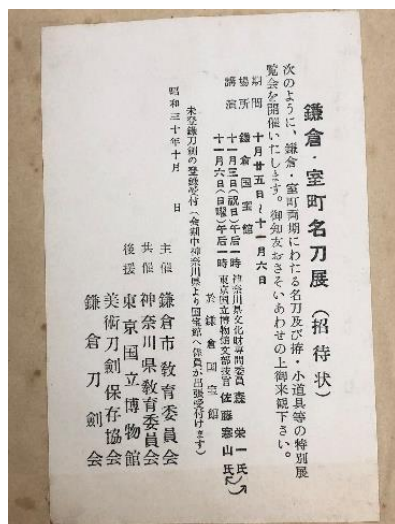 鎌倉・室町名刀展（招待状）
次のように、鎌倉・室町両期にわたる名刀及び拵・小道具等の特別展
覧会を開催いたします。御知友おさそいあわせの上御来観下さい。
期間　十月廿五日～十一月六日
場所　鎌倉国宝館
講演　十一月三日(祝日)午后一時　神奈川県文化財専門委員　森栄一氏
十一月六日(日曜)午后一時　東京国立博物館文部技官　佐藤寒山氏
於鎌倉国宝館
未登録刀剣の登録受付(会期中神奈川県より国宝館へ係員が出張受付けます)
昭和三十年十月　日
主催　鎌倉市教育委員会
共催　神奈川県教育委員会
後援　東京国立博物館
美術刀剣保存協会
鎌倉刀剣会